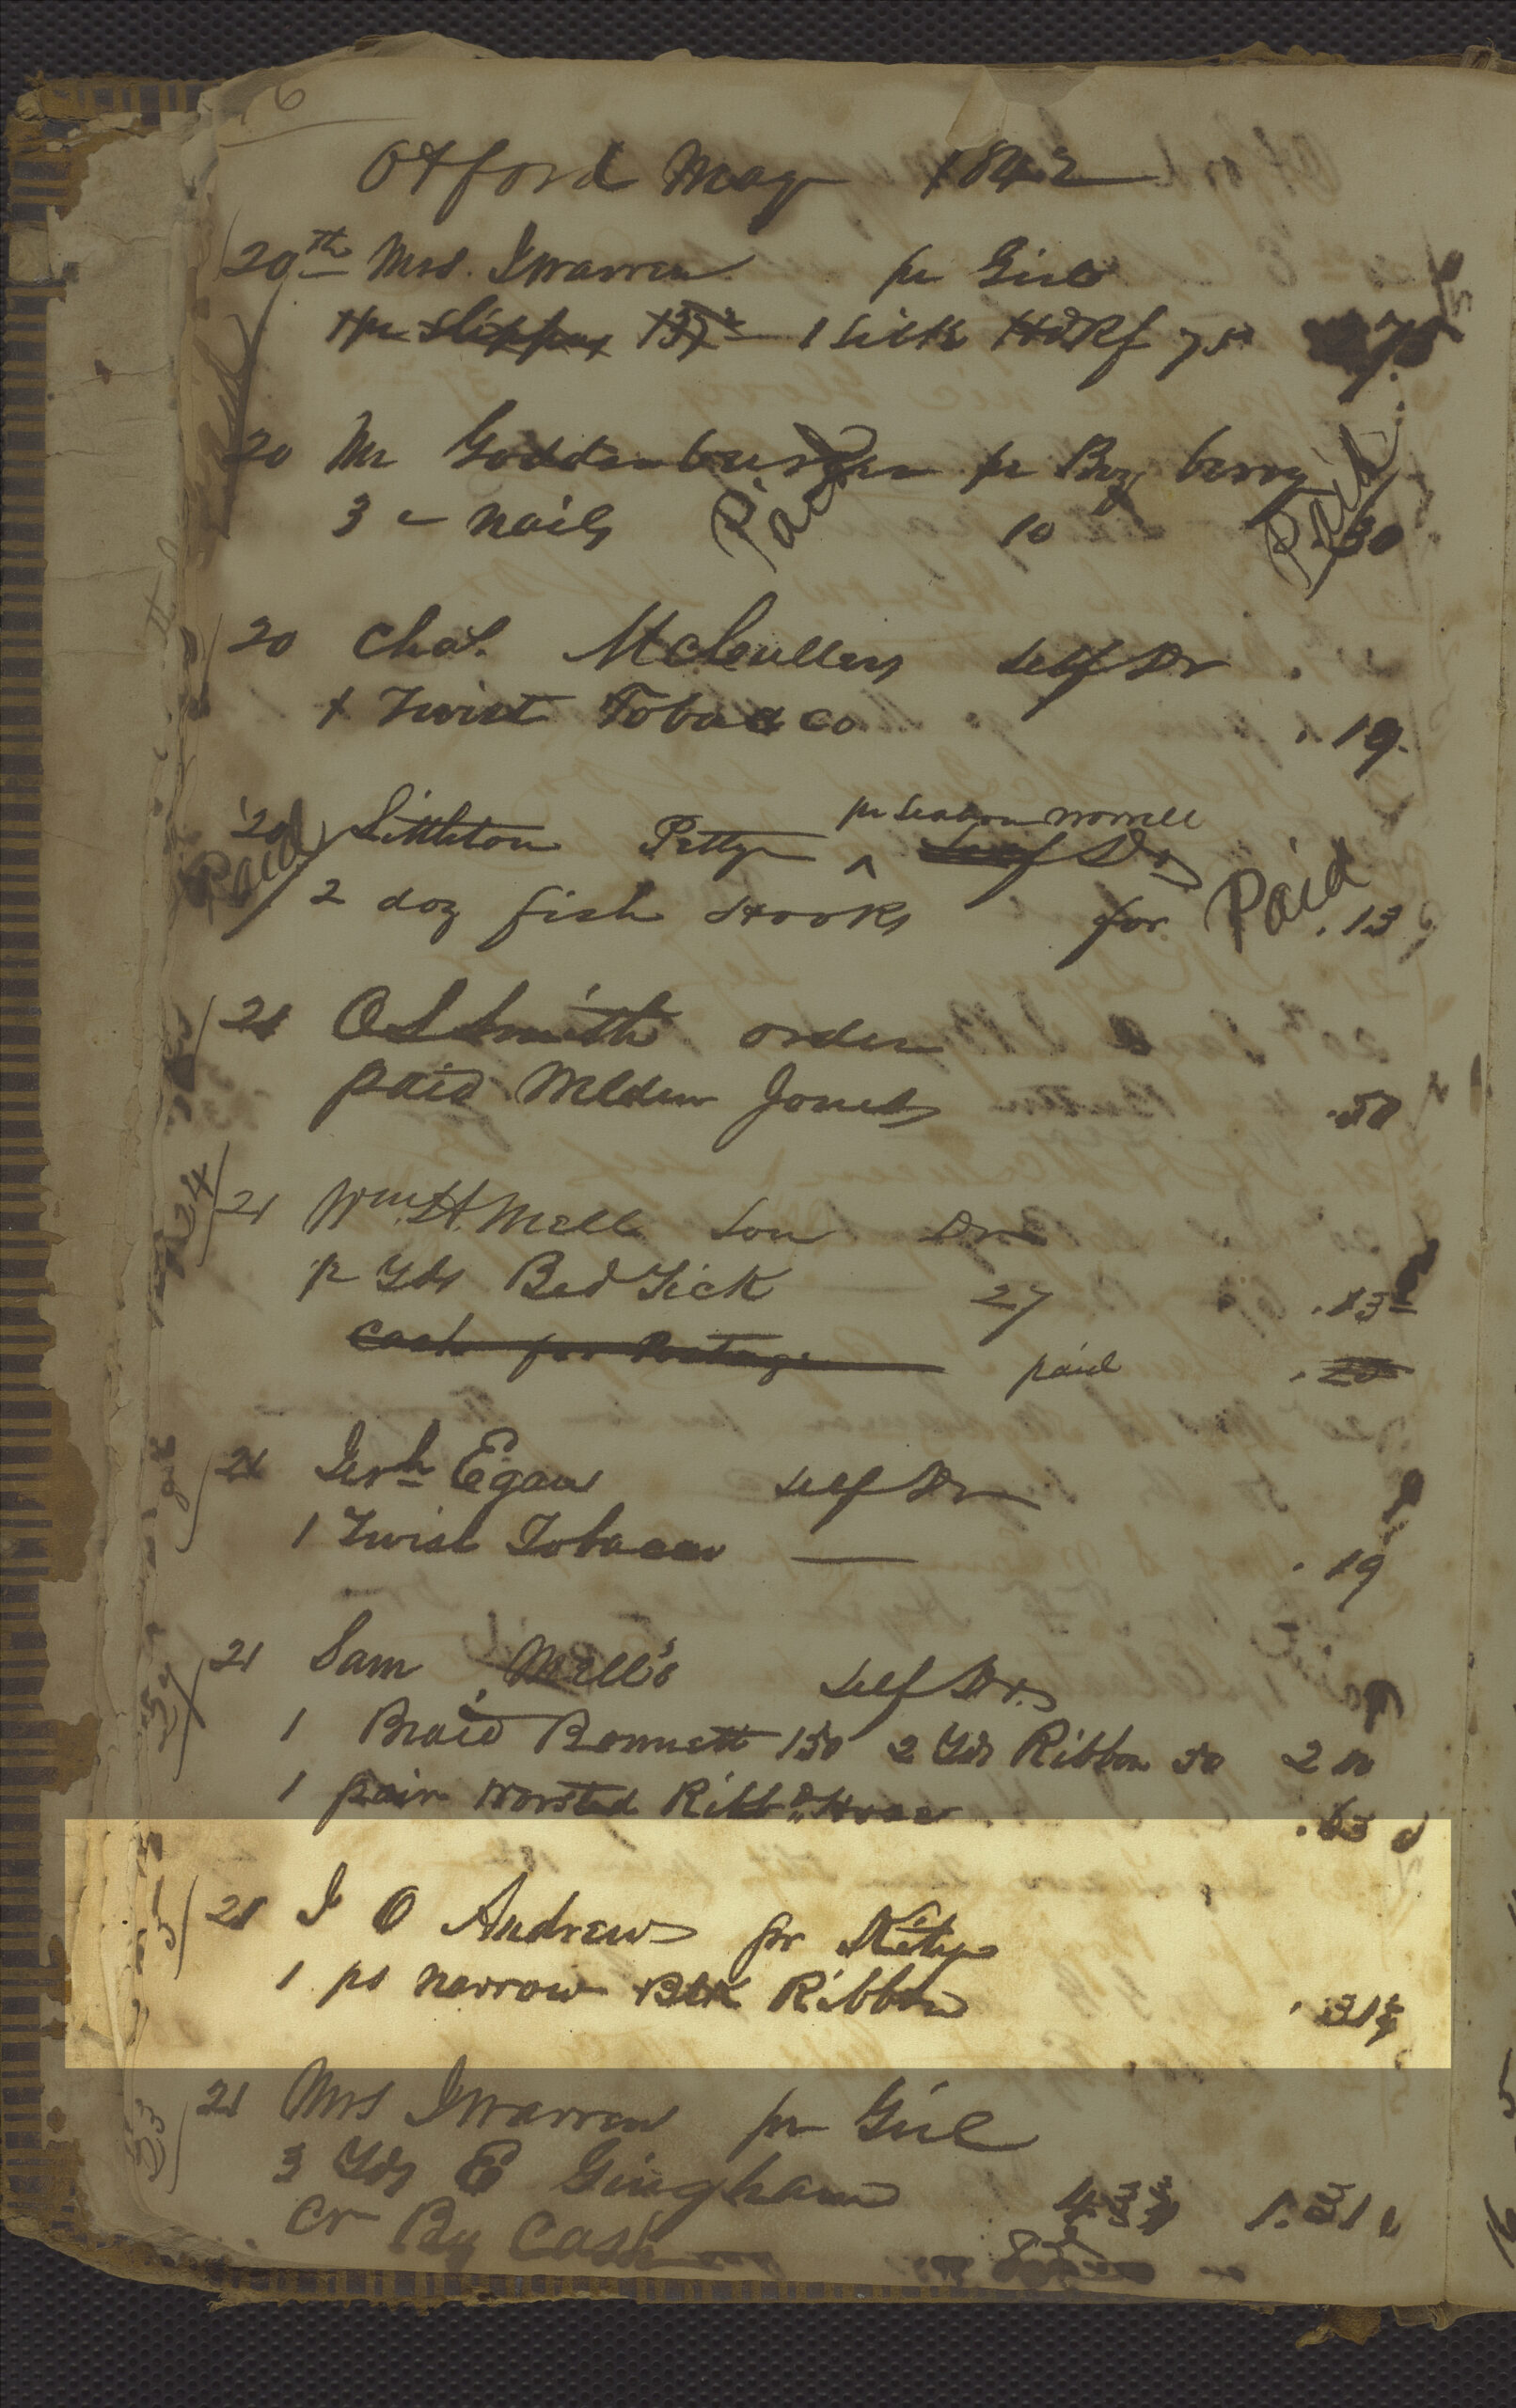 6
Oxford May 1842
20th Mrs. J Warren pr Girl
1 pr Slippers 1 Silk Hdkf 75 75
20 Mr pr Boy
3 - nails 10 .30
Paid Paid
20 Chas. McCullers Self Dr
1 Twist Tobacco .19
pr Seaborn Worrell
20 Littleton Petty ^ Self Dr
Paid 2 doz fish Hooks for Paid .13
21 O L Smith order
paid Weldin Jones .50
21 Wm. H. Mell Son Dr
Yds Bed Tick 27 .13
Cash for Postage paid .25
21 Egan Self Dr
1 Twist Tobacco — .19
21 Sam Mell's Self Dr.
1 Braid Bonnett 150 2 Yds Ribbon 50 2 00
1 pair Worsted Ribbd Hose .63
21 J O Andrews pr Kity
1 ps narrow Blk Ribbon .31¼
53 21 Mrs J Warren pr Girl
3 Yds E Gingham 43¾ 1.31
Cr By Cash